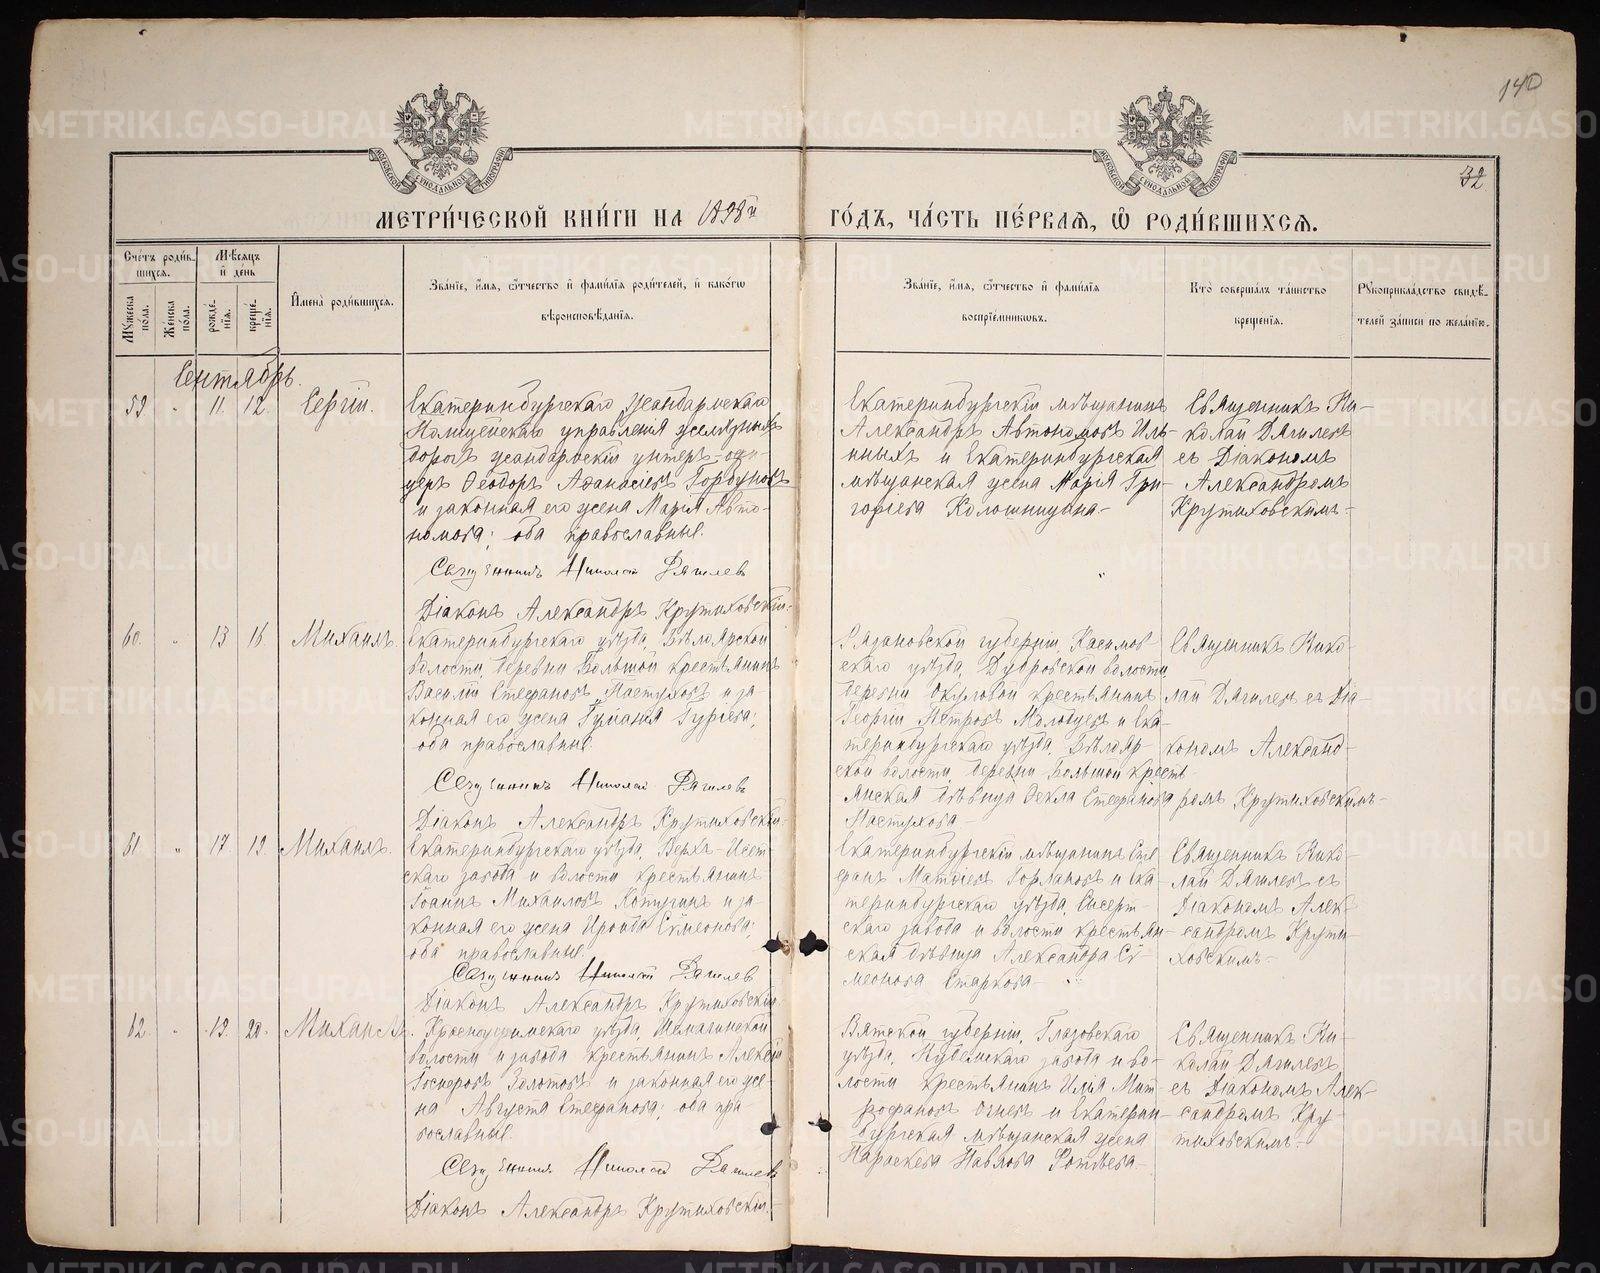 140
32
МОСКОВСКОЙ СѴНОДАЛЬНОЙ ТИПОГРАФІИ
МОСКОВСКОЙ СѴНОДАЛЬНОЙ ТИПОГРАФІИ
МЕТРИ́ЧЕСКОЙ КНИ́ГИ НА 1898й ГО́ДЪ, ЧА́СТЬ ПЕ́РВАѦ, Ѡ҆ РОДИ́ВШИХСѦ.
Сче́тъ роди́в-
шихсѧ.
Мѣ́сѧцъ
и҆ де́нь
Мꙋ́жеска по́ла.
Же́нска по́ла.
рожде́-
нїѧ.
креще́-
нїѧ.
И҆мена̀ роди́вшихсѧ.
Зва́нїе, и҆́мѧ, ѻ҆́тчество и҆ фами́лїѧ роди́телей, и҆ како́гѡ
вѣроисповѣ́данїѧ.
Зва́нїе, и҆́мѧ, ѻ҆́тчество и҆ фами́лїѧ
воспрїе́мникѡвъ.
Кто̀ соверша́лъ та́инство
креще́нїѧ.
Рꙋкоприкла́дство свидѣ́-
телей за́писи по жела́нїю.
Сентябрь.
59. " 11. 12. Сергій.
Екатеринбургскаго Жандармскаго
Полицейскаго управленія желѣзныхъ
дорогъ жандармскій унтеръ-офи-
церъ Ѳеодоръ Аѳанасіевъ Горбуновъ
и законная его жена Марія Авто-
номова; оба православные.
Священникъ Николай Дягилев
Діаконъ Александръ Крутиховскій.
Екатеринбургскій мѣщанинъ
Александръ Автономовъ Иль-
иныхъ и Екатеринбургская
мѣщанская жена Марія Гри-
горіева Колошницина.
Священникъ Ни-
колай Дягилевъ
съ Діакономъ
Александромъ
Крутиховскимъ.
60. " 13 16 Михаилъ.
Екатеринбургскаго уѣзда, Бѣлоярской
волости, деревни Большой крестьянинъ
Василій Стефановъ Пастуховъ и за-
конная его жена Гуріева;
оба православные.
Священникъ Николай Дягилев
Діаконъ Александръ Крутиховскій.
Рязановской губерніи, Касимов-
скаго уѣзда, Дубровской волости,
деревни Окуловой крестьянинъ
Георгій Петровъ и Ека-
теринбургскаго уѣзда, Бѣлояр-
ской волости, деревни Большой кресть-
янская дѣвица Ѳекла Стефанова
Пастухова
Священникъ Нико-
лай Дягилевъ съ Діа-
кономъ Александ-
ромъ Крутиховскимъ.
61. " 17. 19 Михаилъ.
Екатеринбургскаго уѣзда, Верхъ-Исет-
скаго завода и волости крестьянинъ
Іоаннъ Михаиловъ Копугинъ и за-
конная его жена Ироида Сѷмеонова;
оба православные.
Священникъ Николай Дягилев
Діаконъ Александръ Крутиховскій.
Екатеринбургскій мѣщанинъ Сте-
фанъ Матѳіевъ и Ека-
теринбургскаго уѣзда, Сысерт-
скаго завода и волости крестьян-
ская дѣвица Александра Сѷ-
меонова Старкова
Священникъ Нико-
лай Дягилевъ съ
Діакономъ Алек-
сандромъ Крути-
ховскимъ.
62. " 19. 20. Михаилъ.
Красноуфимскаго уѣзда, Шемагинской
волости и завода крестьянинъ Алексій
Золотовъ и законная его же-
на Августа Стефанова; оба пра-
вославные.
Священникъ Николай Дягилев
Діаконъ Александръ Крутиховскій.
Вятской губерніи, Глазовскаго
уѣзда, Пудемскаго завода и во-
лости крестьянинъ Илія Мит-
рофановъ Огневъ и Екатерин-
бургская мѣщанская жена
Параскева Павлова Фотѣева.
Священникъ Ни-
колай Дягилевъ
съ Діакономъ Алек-
сандромъ Кру-
тиховскимъ.
METRIKI.GASO-URAL.RU